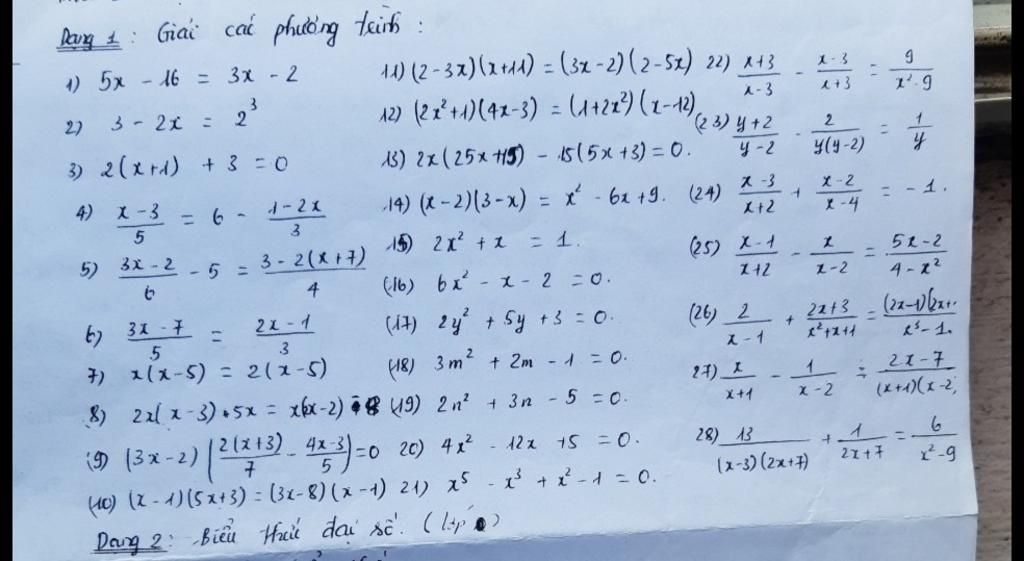 Dạng 1: Giải các phương trình:
1) 5x - 16 = 3x - 2
2) 3 - 2x = 2^3
3) 2(x+1) + 3 = 0
4) (x-3)/5 = 6 - (1-2x)/3
5) (3x-2)/6 - 5 = (3-2(x+7))/4
6) (3x-7)/5 = (2x-1)/3
7) x(x-5) = 2(x-5)
8) 2x(x-3) + 5x = x(x-2) - 8
(9) (3x-2)(2(x+3)/7 - (4x-3)/5) = 0
(10) (x-1)(5x+3) = (3x-8)(x-1)
11) (2-3x)(x+11) = (3x-2)(2-5x)
12) (2x²+1)(4x-3) = (1+2x²)(x-12)
13) 2x(25x+15) - 15(5x+3) = 0.
14) (x-2)(3-x) = x² - 6x + 9.
15) 2x² + x = 1.
(16) 6x² - x - 2 = 0.
(17) 2y² + 5y + 3 = 0.
(18) 3m² + 2m - 1 = 0.
(19) 2n² + 3n - 5 = 0.
20) 4x² - 12x + 5 = 0.
21) x^5 - x³ + x² - 1 = 0.
22) (x+3)/(x-3) - (x-3)/(x+3) = 9/(x²-9)
(23) (y+2)/(y-2) - 2/(y(y-2)) = 1/y
(24) (x-3)/(x+2) + (x-2)/(x-4) = -1.
(25) (x-1)/(x+2) - x/(x-2) = (5x-2)/(4-x²)
(26) 2/(x-1) + (2x+3)/(x²+x+1) = (2x-1)(2x+
x³-1.
27) x/(x+1) - 1/(x-2) = (2x-7)/(x+1)(x-2)
28) 13/((x-3)(2x+7)) + 1/(2x+7) = 6/(x²-9)
Dạng 2: Biểu thức đại số. (lớp